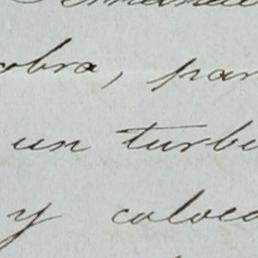 cobra, par
un turbi
y coloca